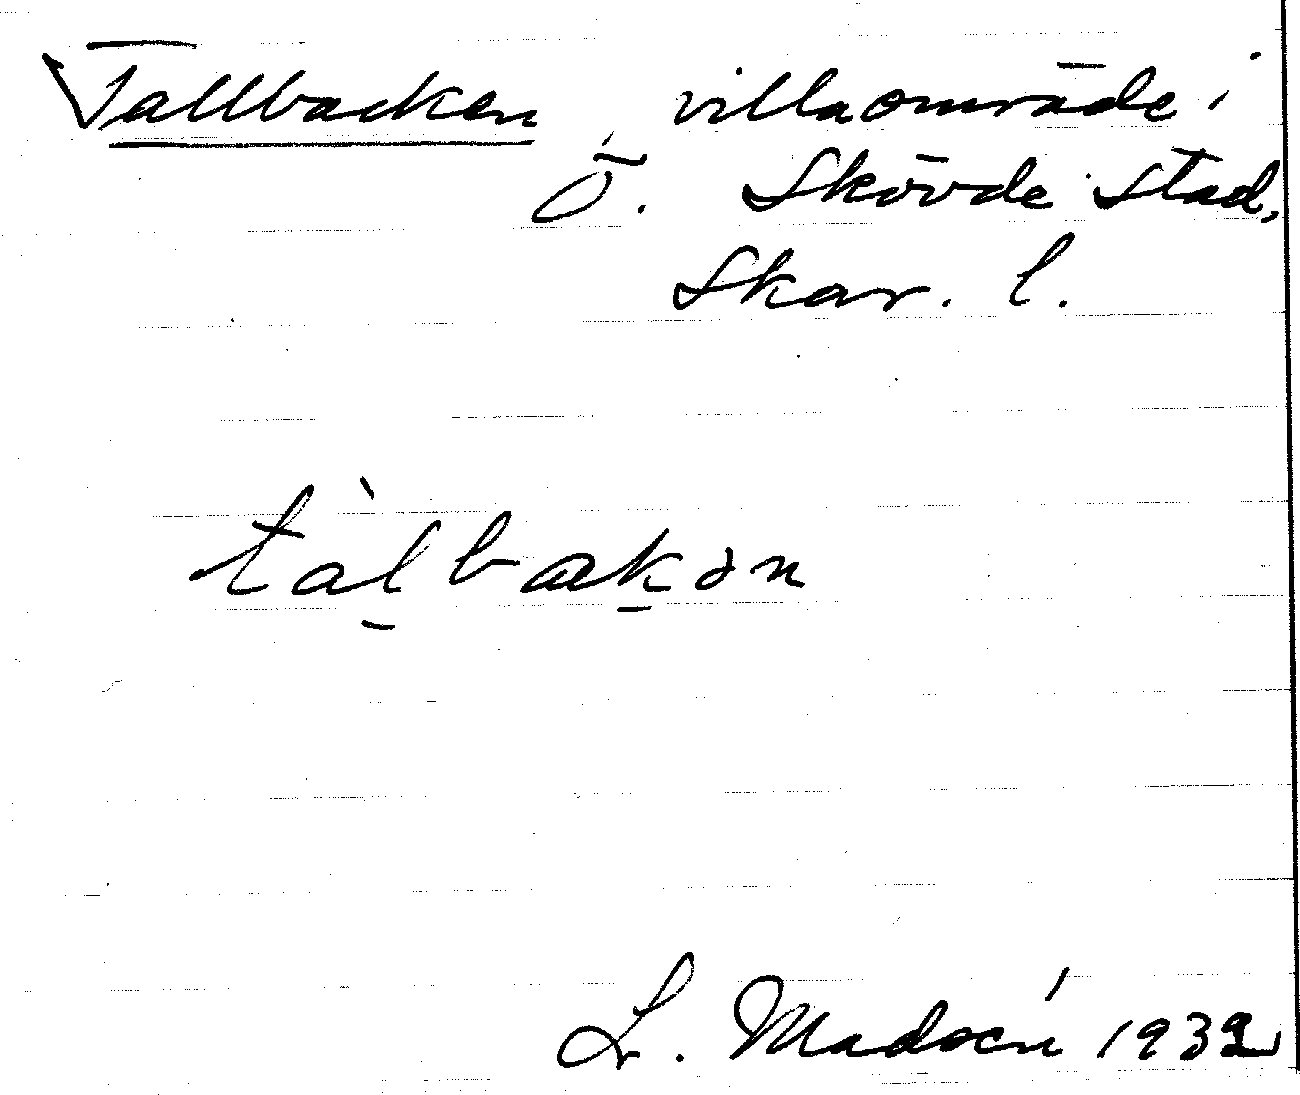 Tallbacken, villaområde i
Ö. Skövde stad,
Skar. l.
tàlbakən
L. Madsén 1932